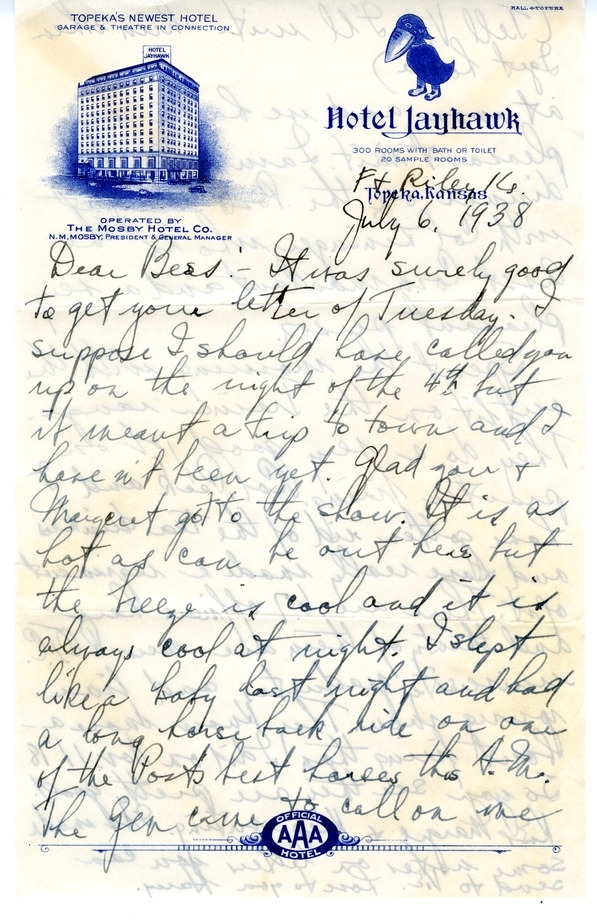 HALL TOPEKA
TOPEKA'S NEWEST HOTEL
GARAGE & THEATRE IN CONNECTION
HOTEL
JAYHAWK
Hotel Jayhawk
300 ROOMS WITH BATH OR TOILET
20 SAMPLE ROOMS
Topeka, Kansas
OPERATED BY
THE MOSBY HOTEL CO.
N.M. MOSBY, PRESIDENT & GENERAL MANAGER
Ft Riley
July 6, 1938
Dear Bess:- It was surely good
to get your letter of Tuesday. I
suppose I should have called you
up on the night of the 4th but
it meant a trip to town and I
haven't been yet. Glad you +
Margaret got to the show. It is as
hot as can be out here but
the breeze is cool and it is
always cool at night. I slept
like a baby last night and had
a long horse back ride on one
of the Posts best horses this A.M.
The Gen came to call on me
OFFICIAL
AAA
HOTEL